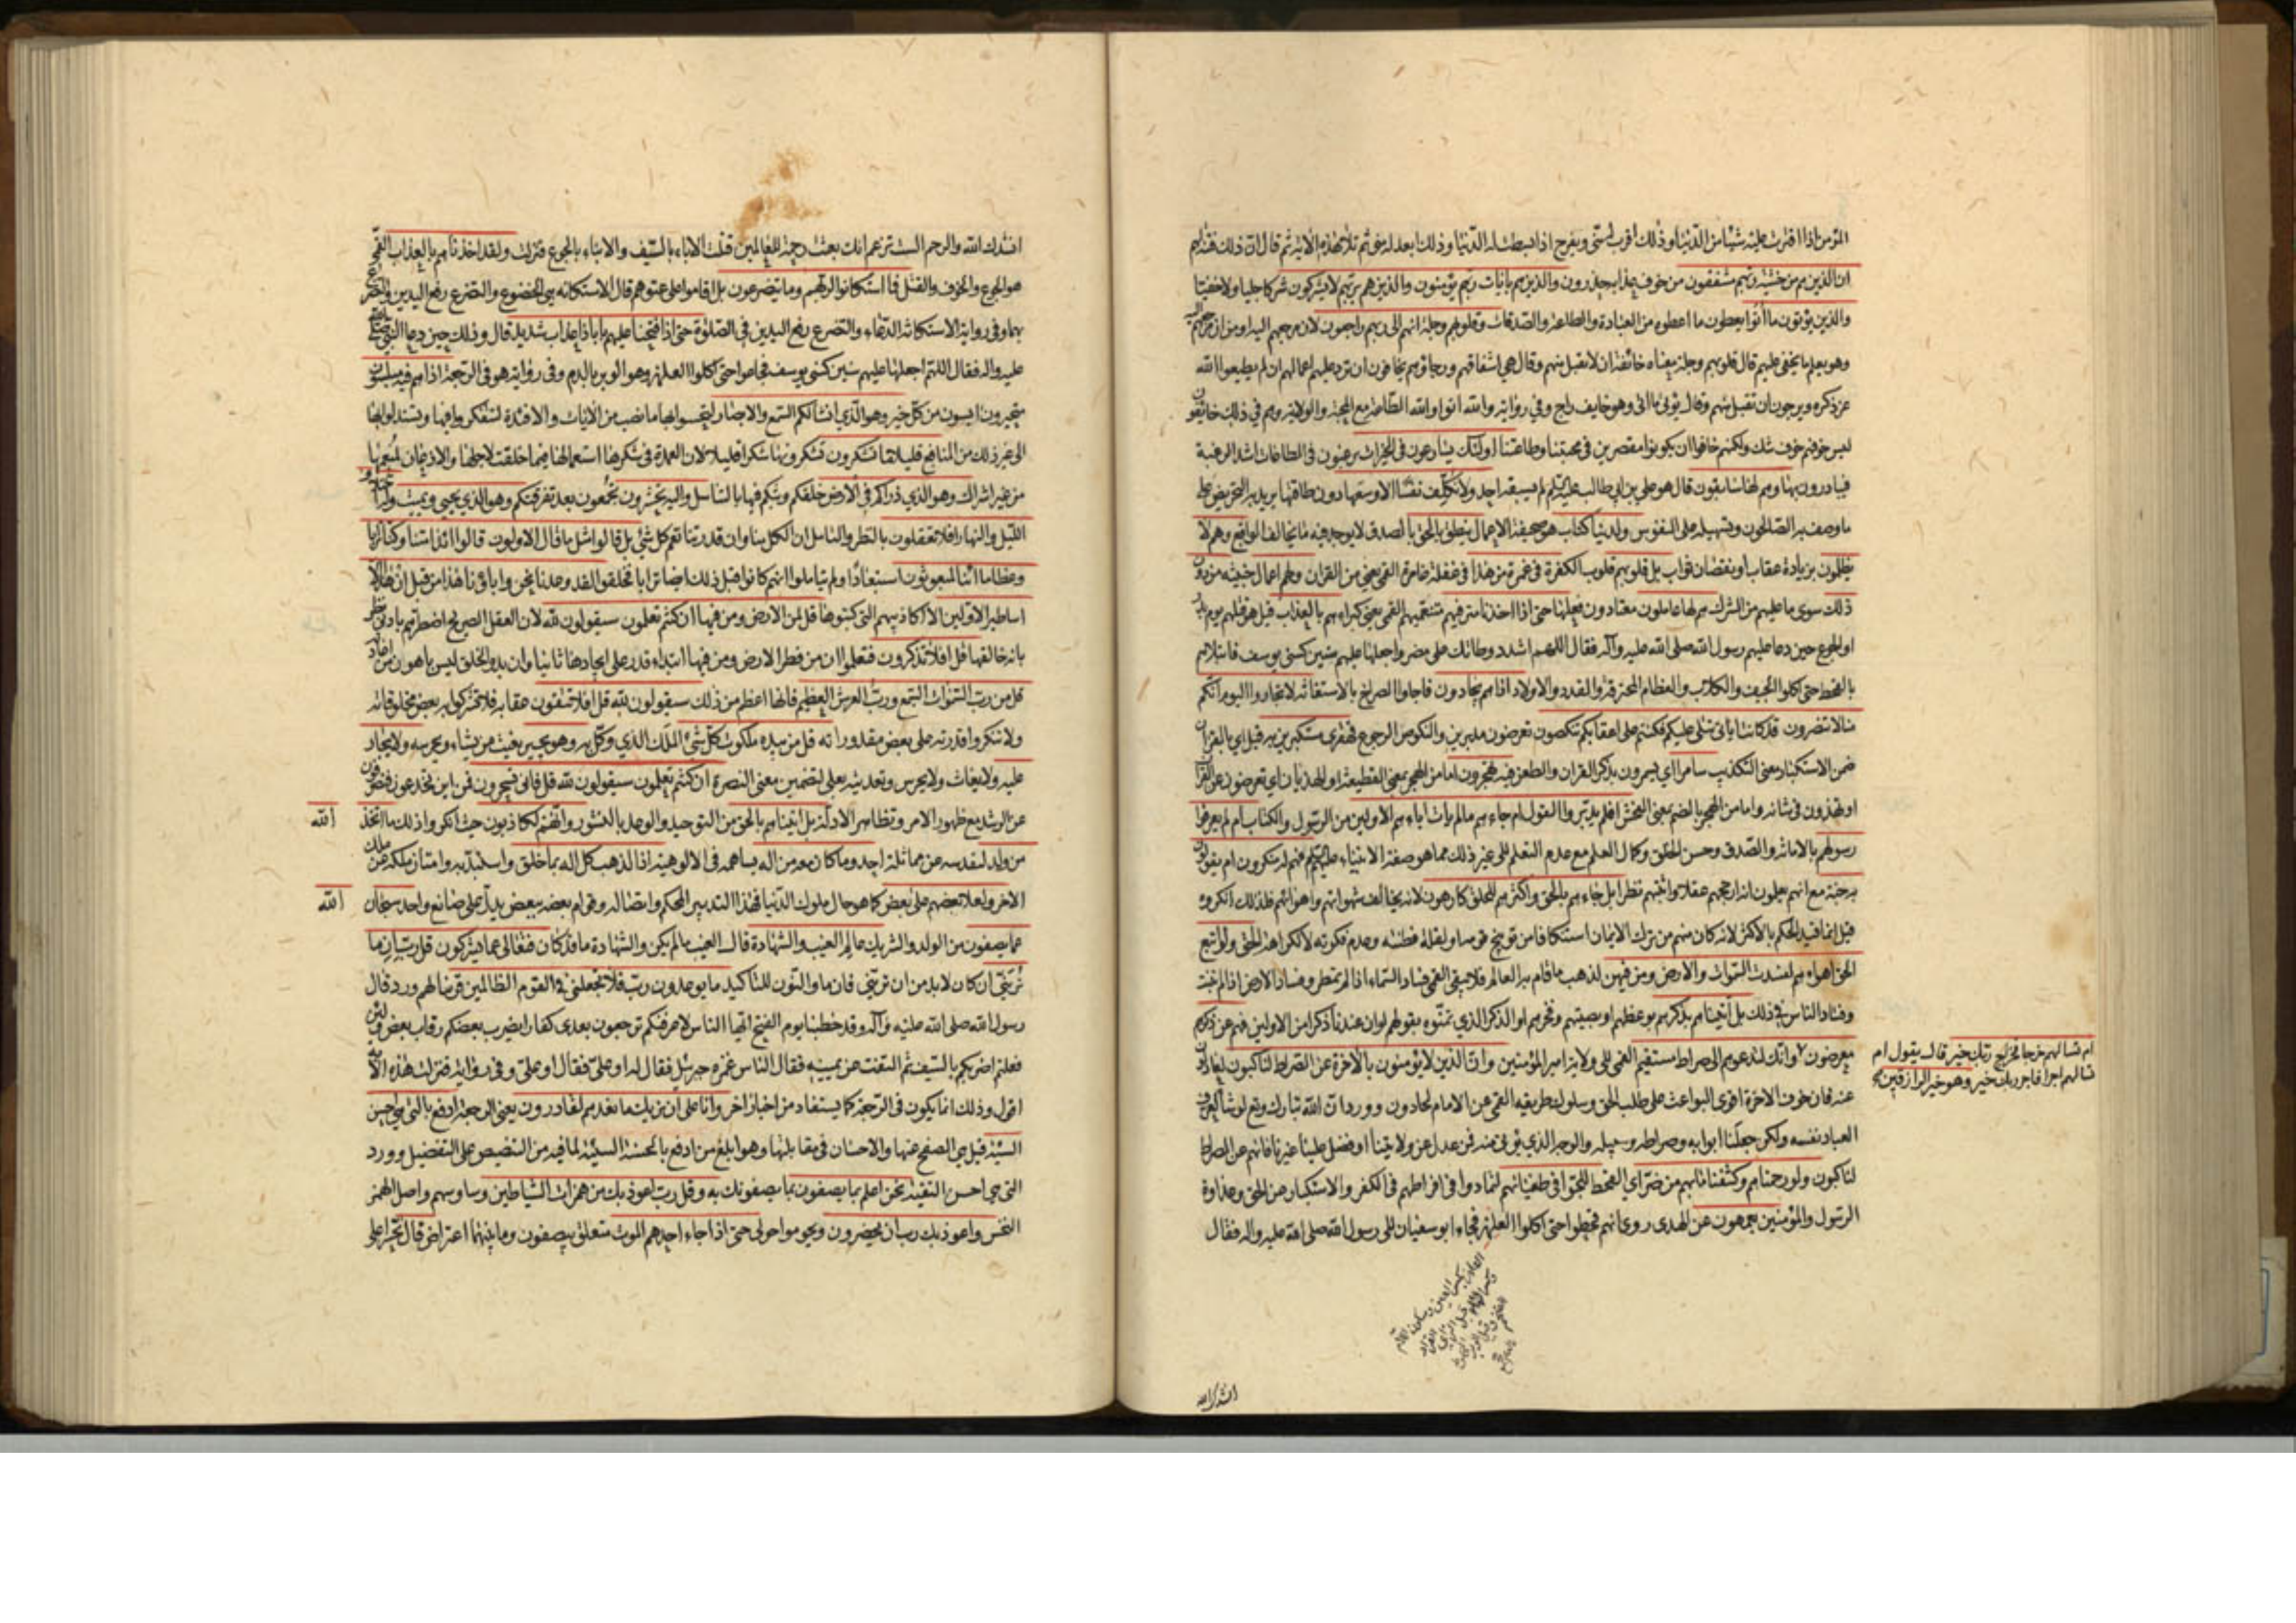 المؤمن اذا اقترت عليه شيئا من الدنيا وذلك اقرب له منى ويفرح اذا بسطت له الدنيا وذلك ابعد له منى ثم تلا هذه الاية ثم قال ان ذلك فتنة لهم
ان الذين هم من خشية ربهم مشفقون من خوف عذابه حذرون والذين هم بايات ربهم يؤمنون والذين هم بربهم لا يشركون شركا جليا ولا خفيا
والذين يؤتون ما اتوا يعطون ما اعطوه من العبادة والطاعة والصدقات وقلوبهم وجلة انهم الى ربهم راجعون لان مرجعهم اليه او من ان مرجعهم اليه
وهو يعلم ما يخفى عليهم قال قلوبهم وجلة معناه خائفة ان لا تقبل منهم وقال هي اشفاقهم ورجاؤهم يخافون ان ترد عليهم اعمالهم ان لم يطيعوا الله
عز ذكره ويرجون ان تقبل منهم وقال يؤتى ما اتى وهو خايف راج وفي رواية والله اتوا والله الطاعة مع المحبة والولاية وهم في ذلك خائفون
ليس خوفهم خوف شك ولكنهم خافوا ان يكونوا مقصرين في محبتنا وطاعتنا اولئك يسارعون في الخيرات يرغبون في الطاعات اشد الرغبة
فيبادرون بها وهم لها سابقون قال هو علي بن ابي طالب عليه السلام لم يسبقه احد ولا نكلف نفسا الا وسعها دون طاقتها يريد به التحريض على
ما وصف به الصالحون وتسهيله على النفوس ولدينا كتاب هو صحيفة الاعمال ينطق بالحق بالصدق لا يوجد فيه ما يخالف الواقع وهم لا
يظلمون بزيادة عقاب او نقصان ثواب بل قلوبهم قلوب الكفرة في غمرة من هذا في غفلة غامرة القمي يعني من القران ولهم اعمال خبيثة من دون
ذلك سوى ما عليهم من الشرك هم لها عاملون معتادون فعلها حتى اذا اخذنا مترفيهم متنعميهم القمي يعني كبراءهم بالعذاب قيل هو قتلهم يوم بدر
او الجوع حين دعا عليهم رسول الله صلى الله عليه وآله فقال اللهم اشدد وطاتك على مضر واجعلها عليهم سنين كسنى يوسف فابتلاهم
بالقحط حتى اكلوا الجيف والكلاب والعظام المحترقة والقدد والاولاد اذا هم يجارون فاجاوا الصراخ بالاستغاثة لا تجاروا اليوم انكم
منا لا تنصرون قد كانت اياتى تتلى عليكم فكنتم على اعقابكم تنكصون تعرضون مدبرين والنكوص الرجوع قهقرى مستكبرين به قيل اي بالقران
ضمن الاستكبار معنى التكذيب سامرا اي يسمرون بذكر القران والطعن فيه تهجرون اما من الهجر بمعنى القطيعة او الهذيان اي تعرضون عن القران
او تهذون في شانه واما من الهجر بالضم بمعنى الفحش افلم يدبروا القول ام جاءهم ما لم يات اباءهم الاولين من الرسول والكتاب ام لم يعرفوا
رسولهم بالامانة والصدق وحسن الخلق وكمال العلم مع عدم التعلم الى غير ذلك مما هو صفة الانبياء عليهم السلام فهم له منكرون ام يقولون
به جنة مع انهم يعلمون انه ارجحهم عقلا واثبتهم نظرا بل جاءهم بالحق واكثرهم للحق كارهون لانه يخالف شهواتهم واهوائهم فلذلك انكروه
قيل انما قيد الحكم بالاكثر لانه كان منهم من ترك الايمان استنكافا من توبيخ قومه او لقلة فطنته وعدم فكرته لا لكراهة الحق ولو اتبع
الحق اهواءهم لفسدت السموات والارض ومن فيهن لذهب ما قام به العالم فلا يبقى القمي فساد السماء اذا لم تمطر وفساد الارض اذا لم تنبت
وفساد الناس في ذلك بل اتيناهم بذكرهم بوعظهم او بصيتهم وفخرهم او الذكر الذي تمنوه بقولهم لو ان عندنا ذكرا من الاولين فهم عن ذكرهم
معرضون وانك لتدعوهم الى صراط مستقيم القمي الى ولاية امير المؤمنين وان الذين لا يؤمنون بالاخرة عن الصراط لناكبون لعادلون
عنه فان خوف الاخرة اقوى البواعث على طلب الحق وسلوك طريقه القمي عن الامام لحادون وورد ان الله تبارك وتع لو شاء لعرف
العباد نفسه ولكن جعلنا ابوابه وصراطه وسبيله والوجه الذي يؤتى منه فمن عدل عن ولايتنا او فضل علينا غيرنا فانهم عن الصراط
لناكبون ولو رحمناهم وكشفنا ما بهم من ضر اي القحط للجوا في طغيانهم لتمادوا في افراطهم في الكفر والاستكبار عن الحق وعداوة
الرسول والمؤمنين يعمهون عن الهدى روى انهم قحطوا حتى اكلوا العلهز فجاء ابو سفيان الى رسول الله صلى الله عليه واله فقال
ام تسالهم خرجا فخراج ربك خير قال يقول ام
تسالهم اجرا فاجر ربك خير وهو خير الرازقين
انشدك الله
انشدك الله والرحم الست تزعم انك بعثت رحمة للعالمين قتلت الاباء بالسيف والابناء بالجوع فنزلت ولقد اخذناهم بالعذاب القمي
هو الجوع والخوف والقتل فما استكانوا لربهم وما يتضرعون بل اقاموا على عتوهم قال الاستكانة هي الخضوع والتضرع رفع اليدين والتضرع
بهما وفي رواية الاستكانة الدعاء والتضرع رفع اليدين في الصلوة حتى اذا فتحنا عليهم بابا ذا عذاب شديد قال وذلك حين دعا النبي صلى الله
عليه واله فقال اللهم اجعلها عليهم سنين كسنى يوسف فجاعوا حتى اكلوا العلهز وهو الوبر بالدم وفي رواية هو في الرجعة اذا هم فيه مبلسون
متحيرون ايسون من كل خير وهو الذي انشا لكم السمع والابصار لتحسوا بها ما نصب من الايات والافئدة لتتفكروا فيها وتستدلوا بها
الى غير ذلك من المنافع قليلا ما تشكرون تشكرونها شكرا قليلا لان العمدة في شكرها استعمالها فيما خلقت لاجلها والاذعان لمنعمها
من غير اشراك وهو الذي ذراكم في الارض خلقكم وبثكم فيها بالتناسل واليه تحشرون تجمعون بعد تفرقتكم وهو الذي يحيي ويميت وله اختلاف
الليل والنهار افلا تعقلون بالنظر والتامل ان الكل منا وان قدرتنا تعم كل شئ بل قالوا مثل ما قال الاولون قالوا ائذا متنا وكنا ترابا
وعظاما ائنا لمبعوثون استبعادا ولم يتاملوا انهم كانوا قبل ذلك ايضا ترابا فخلقوا لقد وعدنا نحن واباؤنا هذا من قبل ان هذا الا
اساطير الاولين الا اكاذيبهم التى كتبوها قل لمن الارض ومن فيها ان كنتم تعلمون سيقولون لله لان العقل الصريح اضطرهم بادنى نظر
بانه خالقها قل افلا تذكرون فتعلموا ان من فطر الارض ومن فيها ابتداء قدر على ايجادها ثانيا وان بدو الخلق ليس باهون من اعادته
قل من رب السموات السبع ورب العرش العظيم فانها اعظم من ذلك سيقولون لله قل افلا تتقون عقابه فلا تشركوا به بعض مخلوقاته
ولا تنكروا قدرته على بعض مقدوراته قل من بيده ملكوت كل شئ الملك الذي وكل به وهو يجير يغيث من يشاء ويحرسه ولا يجار
عليه ولا يغاث ولا يحرس وتعديته بعلى لتضمين معنى النصرة ان كنتم تعلمون سيقولون لله قل فانى تسحرون فمن اين تخدعون فتصرفون
عن الرشد مع ظهور الامر وتظاهر الادلة بل اتيناهم بالحق من التوحيد والوعد بالنشور وانهم لكاذبون حيث انكروا ذلك ما اتخذ الله
من ولد لتقدسه عن مماثلة احد وما كان معه من اله يساهمه في الالوهية اذا لذهب كل اله بما خلق واستبد به وامتاز ملكه عن ملك
الاخر ولعلا بعضهم على بعض كما هو حال ملوك الدنيا فهذا التدبير المحكم واتصاله وقوام بعضه ببعض يدل على صانع واحد سبحان الله
عما يصفون من الولد والشريك عالم الغيب والشهادة قال الغيب ما لم يكن والشهادة ما قد كان فتعالى عما يشركون قل رب ان ما
تريني ان كان لا بد من ان تريني فان ما والنون للتاكيد ما يوعدون رب فلا تجعلني في القوم الظالمين قرينا لهم ورد قال
رسول الله صلى الله عليه وآله وقد خطبنا يوم الفتح ايها الناس لاعرفنكم ترجعون بعدى كفارا يضرب بعضكم رقاب بعض ولئن
فعلتم لاضربنكم بالسيف ثم التفت عن يمينه فقال الناس غمزه جبرئيل فقال له او علي فقال او علي وفي رواية فنزلت هذه الاية
اقول وذلك انما يكون في الرجعة كما يستفاد من اخبار اخر وانا على ان نريك ما نعدهم لقادرون يعني الرجعة ادفع بالتي هي احسن
السيئة قيل هي الصفح عنها والاحسان في مقابلتها وهو ابلغ من ادفع بالحسنة السيئة لما فيه من التنصيص على التفضيل وورد
التي هي احسن التقية نحن اعلم بما يصفون بما يصفونك به وقل رب اعوذ بك من همزات الشياطين وساوسهم واصل الهمز
النخس واعوذ بك رب ان يحضرون ويحوموا حولى حتى اذا جاء احدهم الموت متعلق بيصفون وما بينهما اعتراض قال تحسرا على